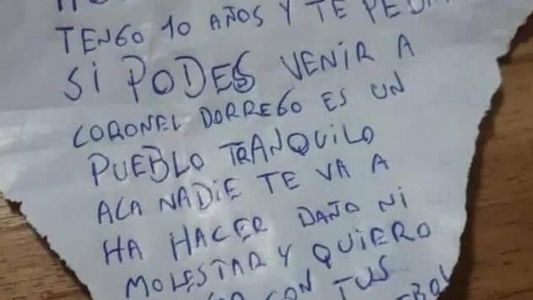 TENGO 10 AÑOS Y TE PEDI
SI PODES VENIR A
CORONEL DORREGO ES UN
PUEBLO TRANQUILO
ACA NADIE TE VA A
HA HACER DAÑO NI
MOLESTAR Y QUIERO
CON TUS